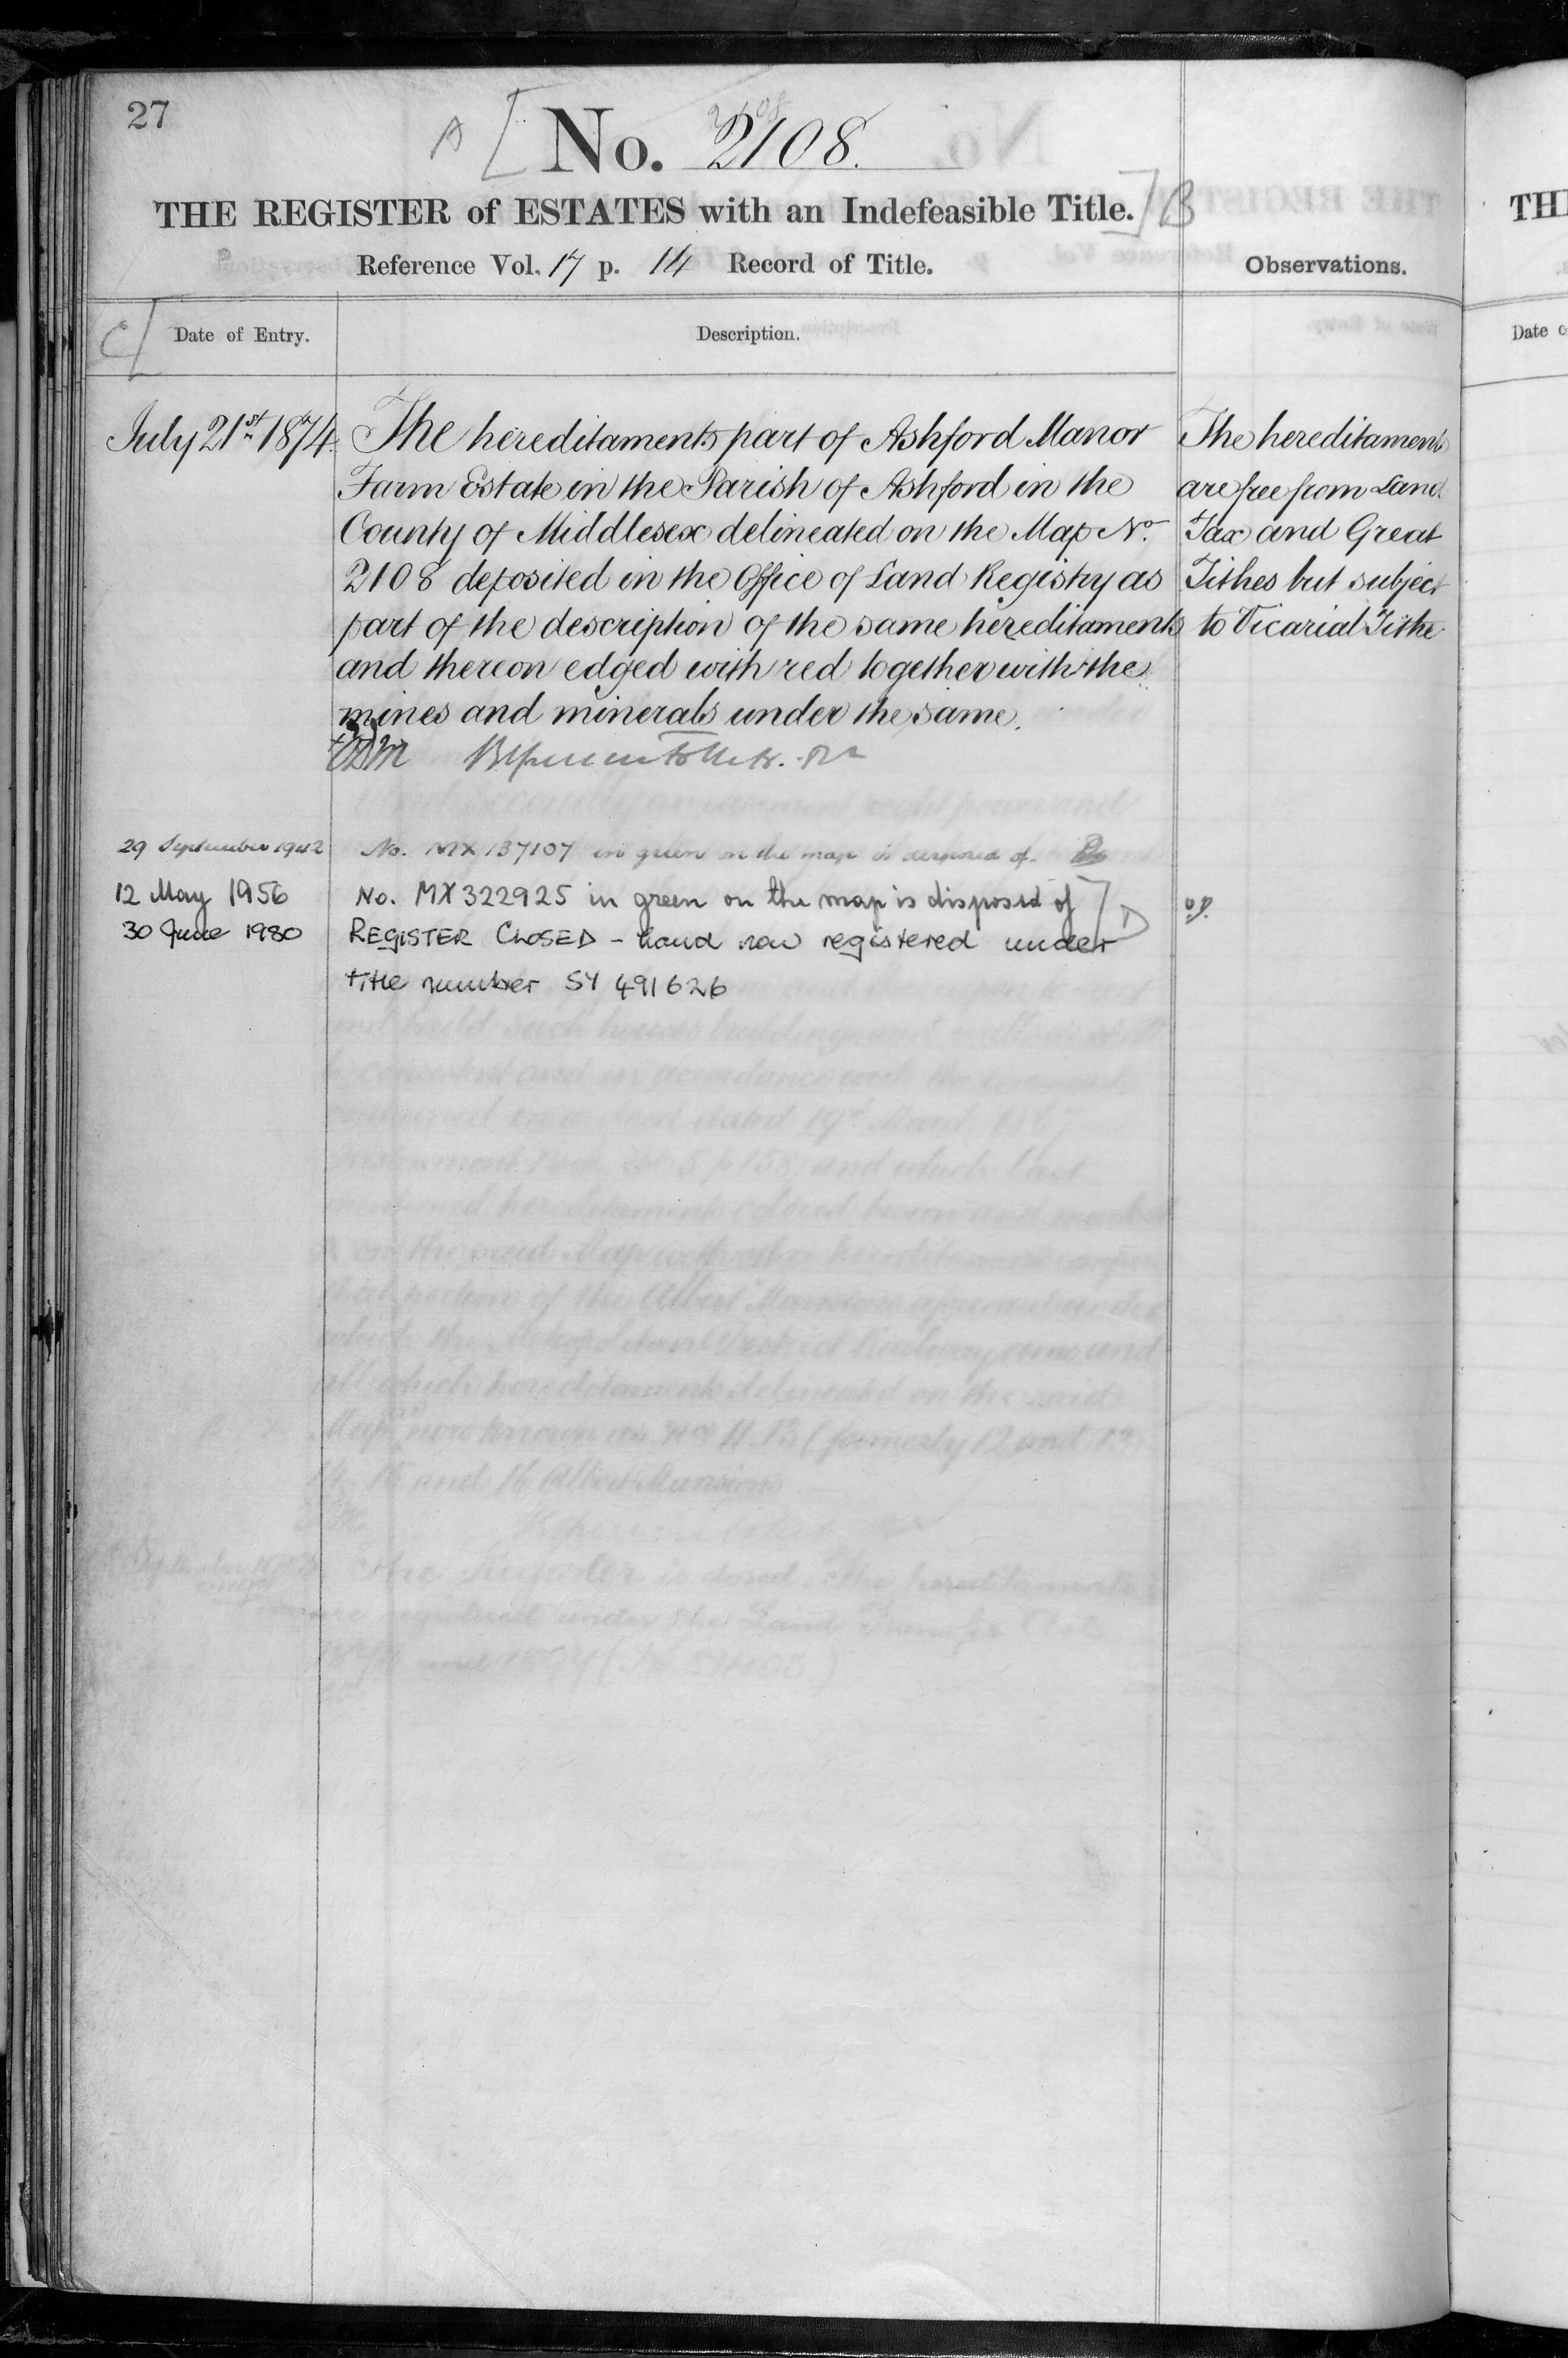 27
A [ No. 2108.
THE REGISTER of ESTATES with an Indefeasible Title. ] B
Reference Vol. 17 p. 14 Record of Title.
Observations.
C [ Date of Entry.
Description.
July 21st 1874. The hereditaments part of Ashford Manor
Farm Estate in the Parish of Ashford in the
County of Middlesex delineated on the Map No
2108 deposited in the Office of Land Registry as
part of the description of the same hereditaments
and thereon edged with red together with the
mines and minerals under the same.
The hereditaments
are free from Land
Tax and Great
Tithes but subject
to Vicarial Tithe
29 September 1942 No. MX 137107 in green on the map is disposed of.
12 May 1956 No. MX322925 in green on the map is disposed of ] D
30 June 1980 REGISTER CLOSED - Land now registered under
title number SY 491626
TH
Date o